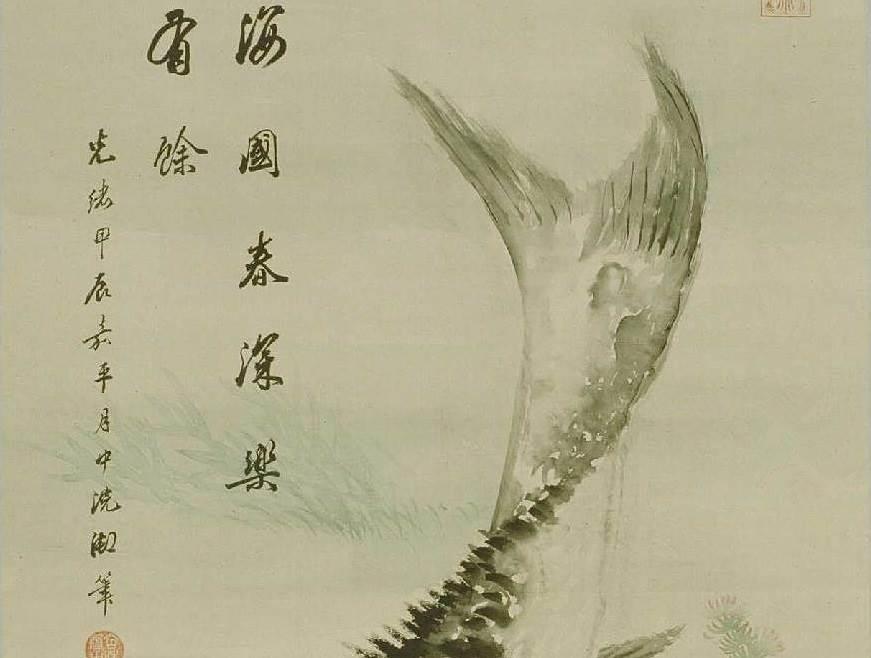 海國春深樂
有餘
光緒甲辰嘉平月中浣筆